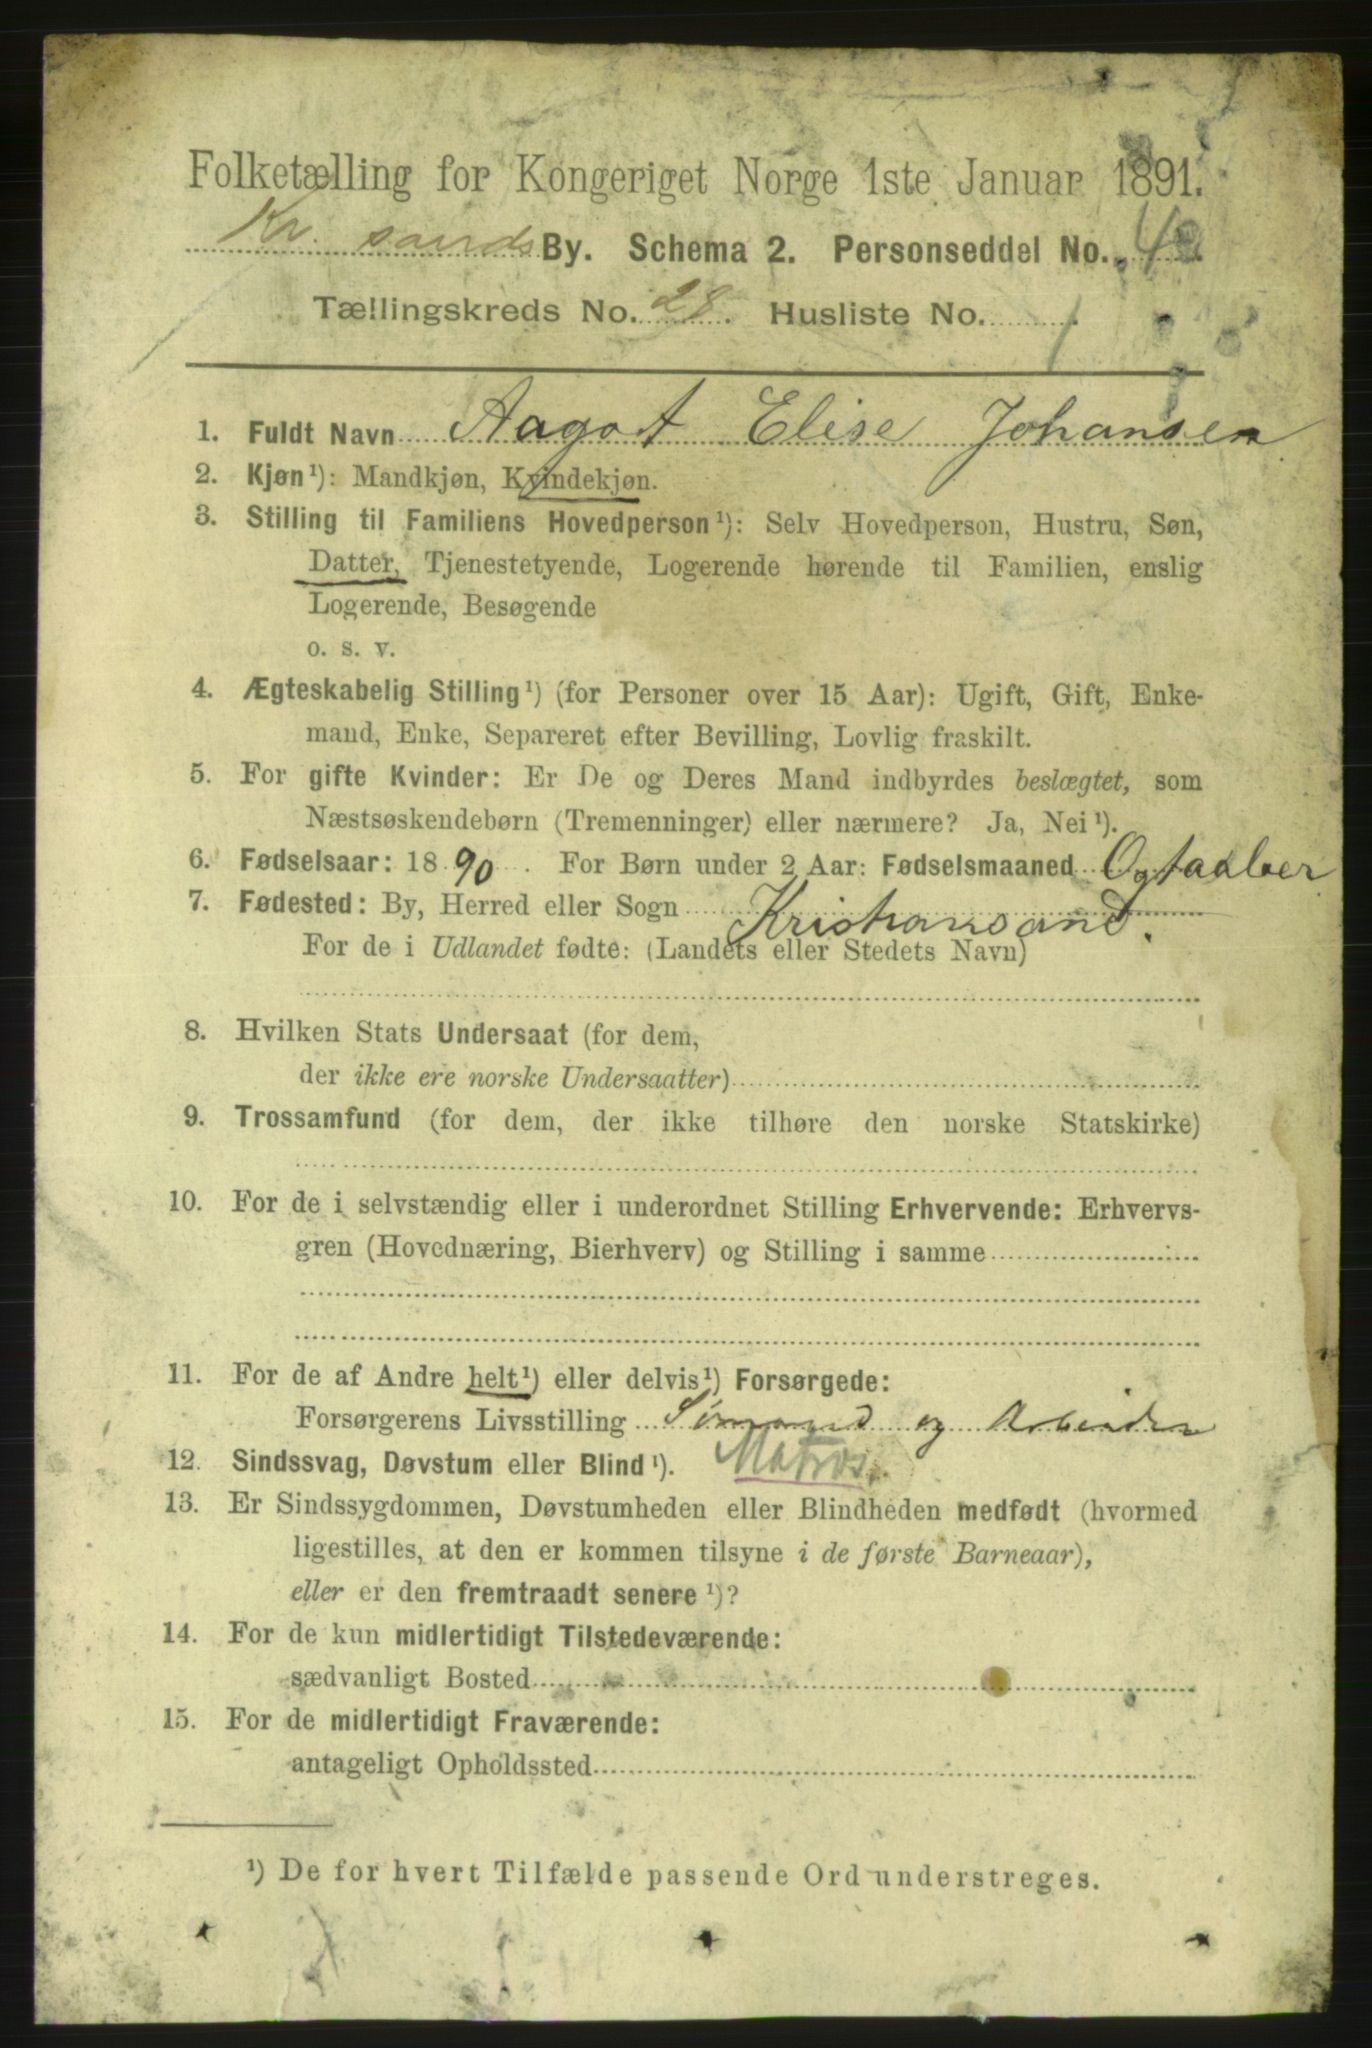 Folketælling for Kongeriget Norge 1ste Januar 1891.
Kr. sands By. Schema 2. Personseddel No. 40
Tællingskreds No. 28. Husliste No. 1.
1. Fuldt Navn Aagot Elise Johansen
2. Kjøn¹): Mandkjøn, Kvindekjøn.
3. Stilling til Familiens Hovedperson¹): Selv Hovedperson, Hustru, Søn,
Datter, Tjenestetyende, Logerende hørende til Familien, enslig
Logerende, Besøgende
o. s. v.
4. Ægteskabelig Stilling¹) (for Personer over 15 Aar): Ugift, Gift, Enke-
mand, Enke, Separeret efter Bevilling, Lovlig fraskilt.
5. For gifte Kvinder: Er De og Deres Mand indbyrdes beslægtet, som
Næstsøskendebørn (Tremenninger) eller nærmere? Ja, Nei¹).
6. Fødselsaar: 1890. For Børn under 2 Aar: Fødselsmaaned Ogtaaber
7. Fødested: By, Herred eller Sogn Kristiansand.
For de i Udlandet fødte: (Landets eller Stedets Navn)
8. Hvilken Stats Undersaat (for dem,
der ikke ere norske Undersaatter)
9. Trossamfund (for dem, der ikke tilhøre den norske Statskirke)
10. For de i selvstændig eller i underordnet Stilling Erhvervende: Erhvervs-
gren (Hovednæring, Bierhverv) og Stilling i samme
11. For de af Andre helt¹) eller delvis¹) Forsørgede:
Forsørgerens Livsstilling Sømand og Arbeider
Matros.
12. Sindssvag, Døvstum eller Blind¹).
13. Er Sindssygdommen, Døvstumheden eller Blindheden medfødt (hvormed
ligestilles, at den er kommen tilsyne i de første Barneaar),
eller er den fremtraadt senere¹)?
14. For de kun midlertidigt Tilstedeværende:
sædvanligt Bosted
15. For de midlertidigt Fraværende:
antageligt Opholdssted
¹) De for hvert Tilfælde passende Ord understreges.